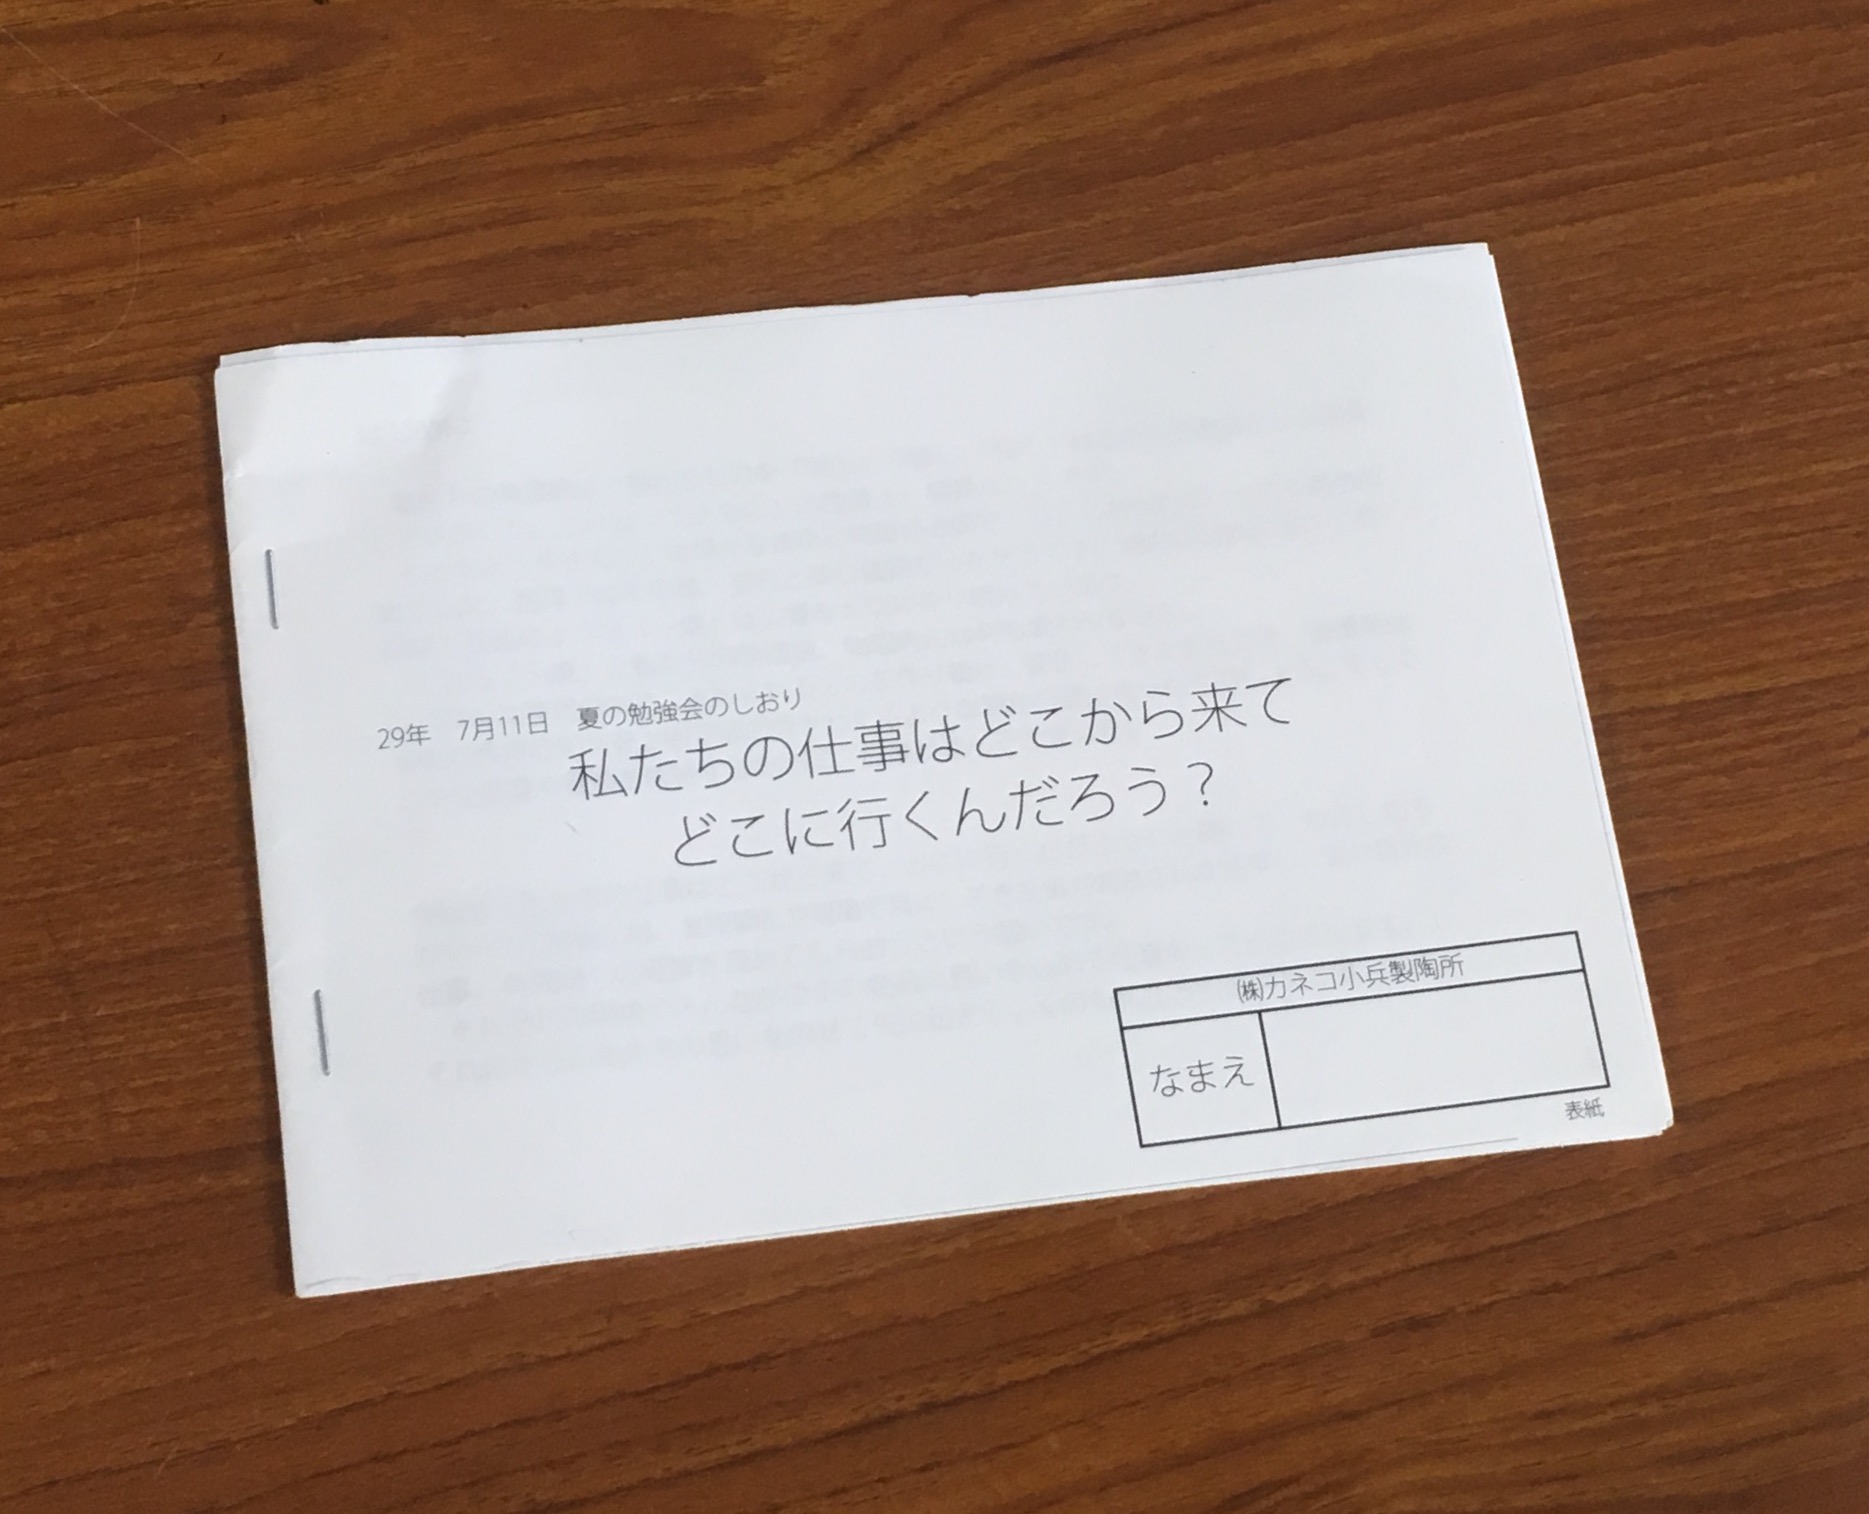 29年　7月11日　夏の勉強会のしおり
私たちの仕事はどこから来て
どこに行くんだろう？
㈱カネコ小兵製陶所
なまえ
表紙